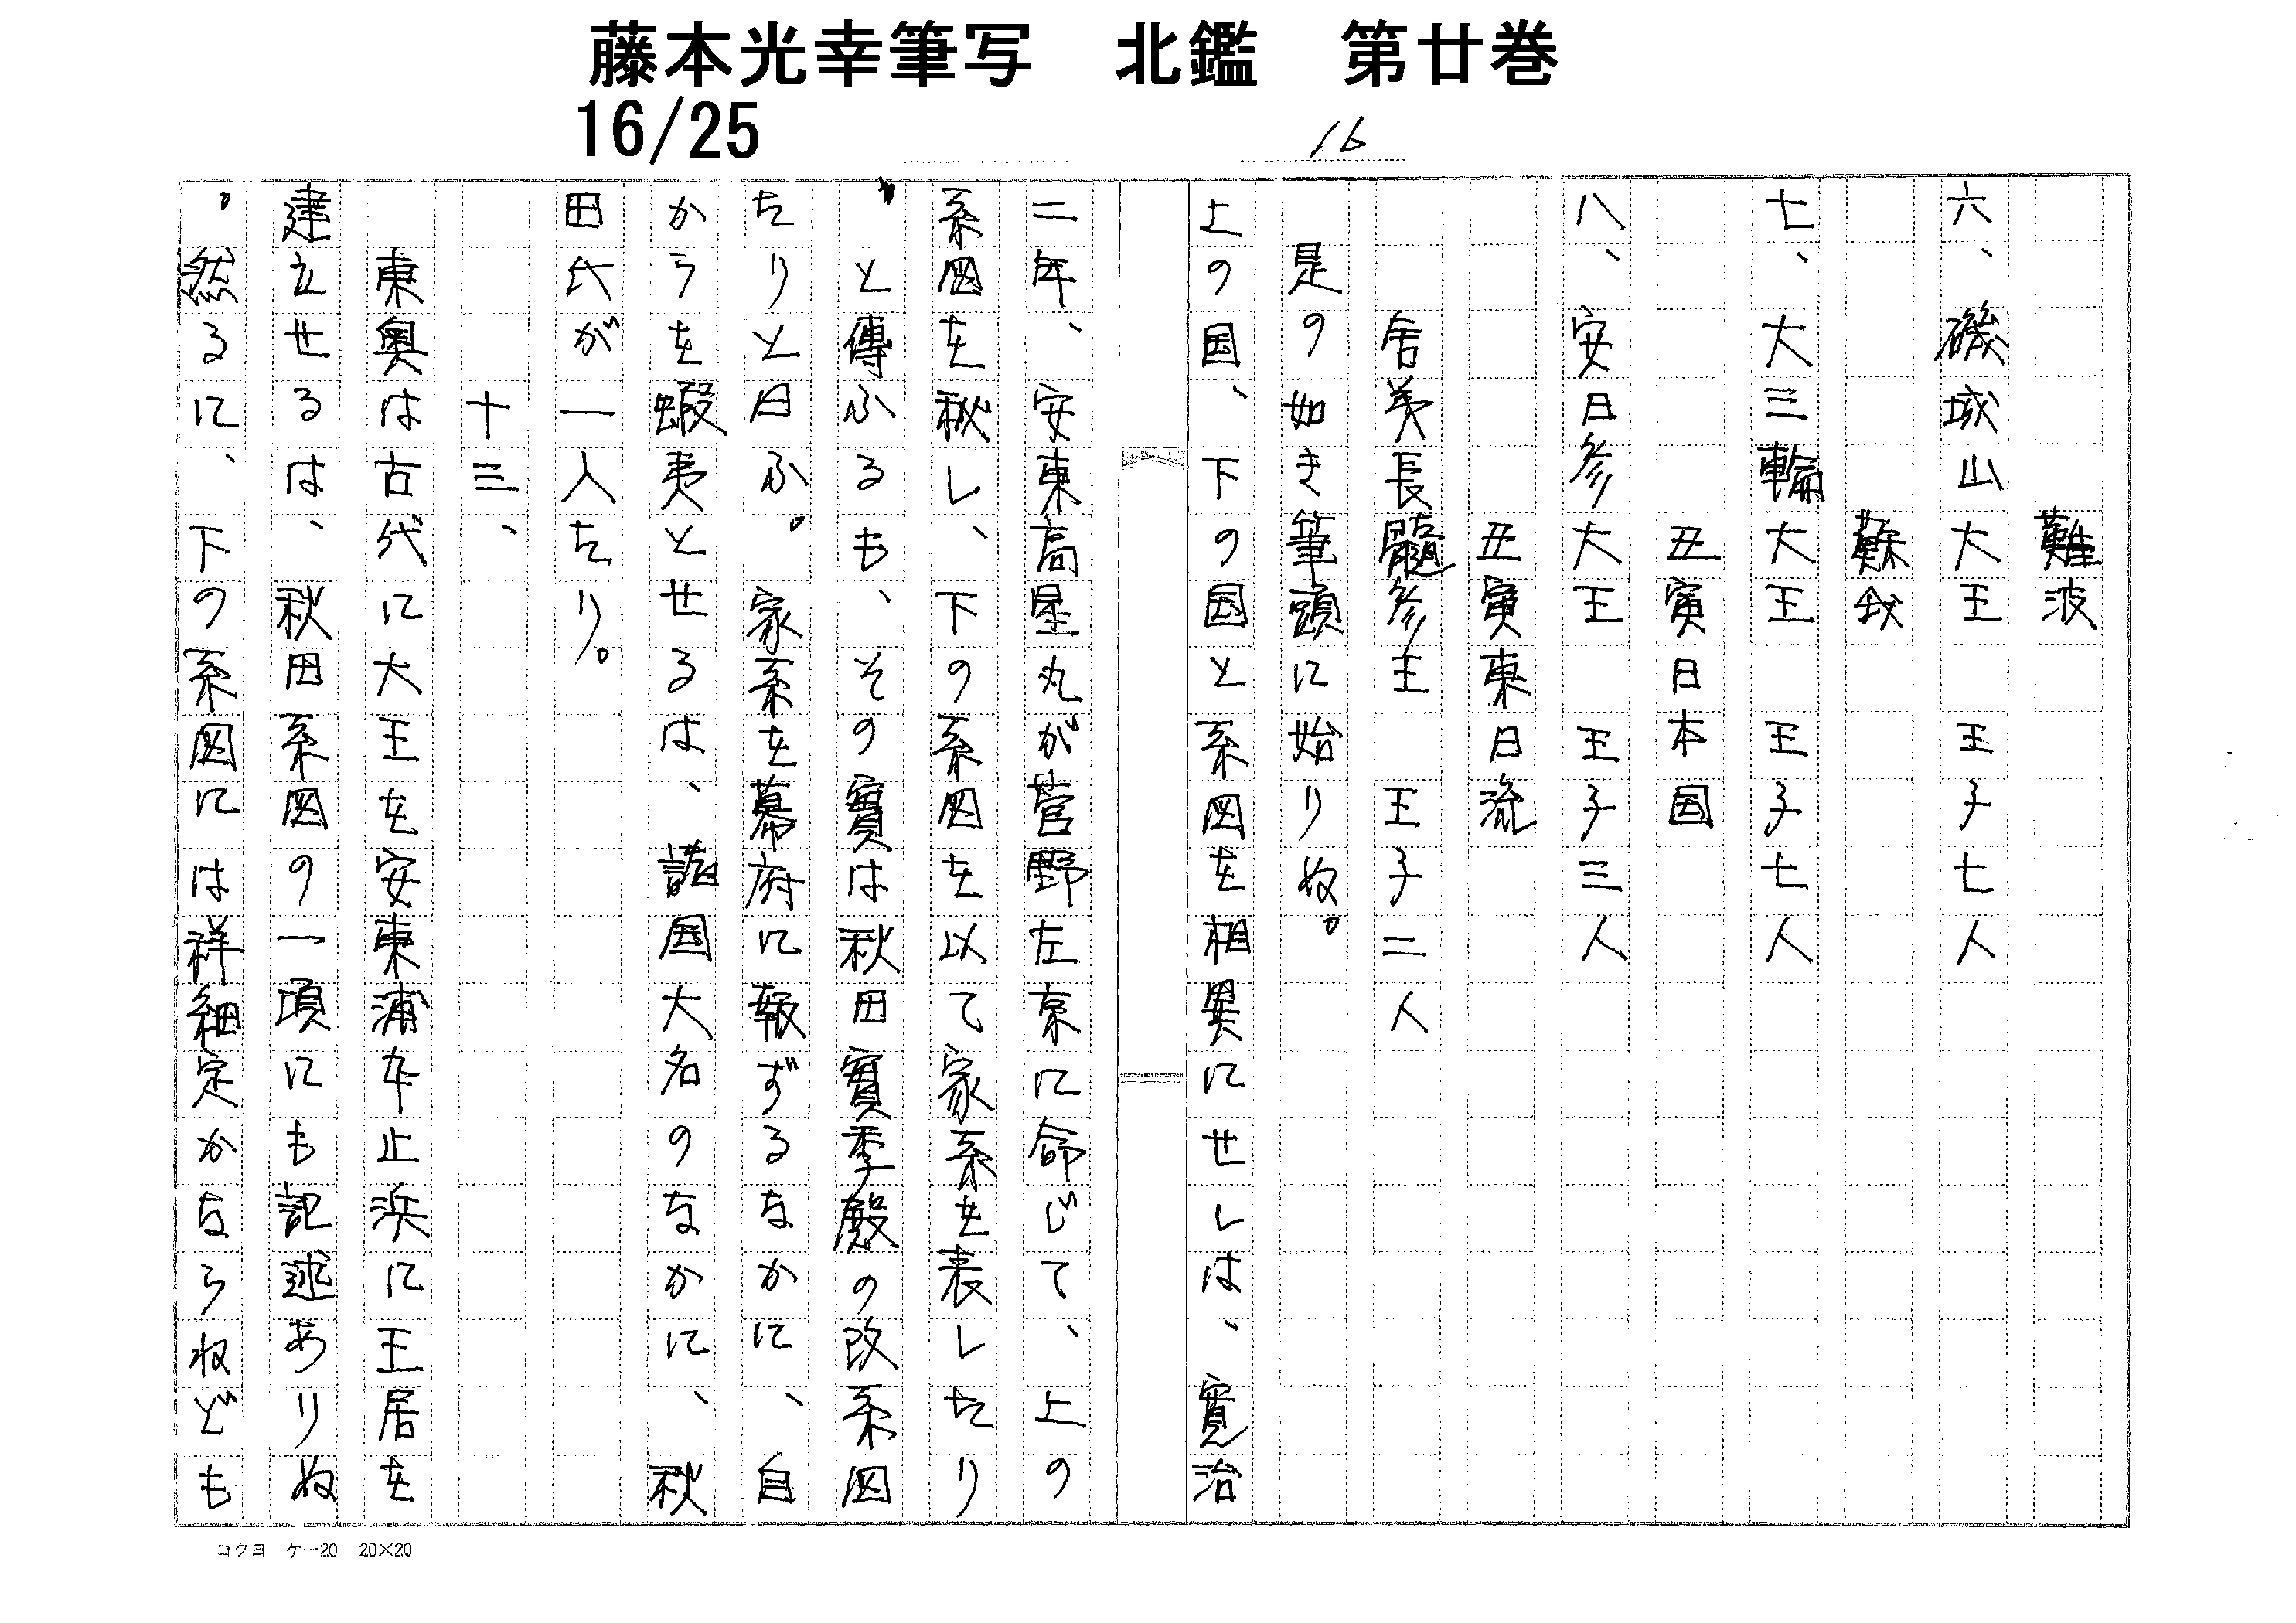 藤本光幸筆写　北鑑　第廿巻
16/25
16
難波
六、磯城山大王　王子七人
蘇我
七、大三輪大王　王子七人
丑寅日本国
八、安日彦大王　王子三人
丑寅東日流
舎美長髓彦王　王子二人
是の如き筆頭に始りぬ。
上の国、下の国と系図を相異にせしは、寛治
二年、安東高星丸が菅野左京に命じて、上の
系図を秘し、下の系図を以て家系を表したり
。と傳ふるも、その實は秋田實季殿の改系図
たりと曰ふ。家系を幕府に報ずるなかに、自
からを蝦夷とせるは、諸国大名のなかに、秋
田氏が一人たり。
十三、
東奥は古代に大王を安東浦年止浜に王居を
建立せるは、秋田系図の一項にも記述ありぬ
。然るに、下の系図には祥細定かならねども
コクヨ　ケー20　20×20